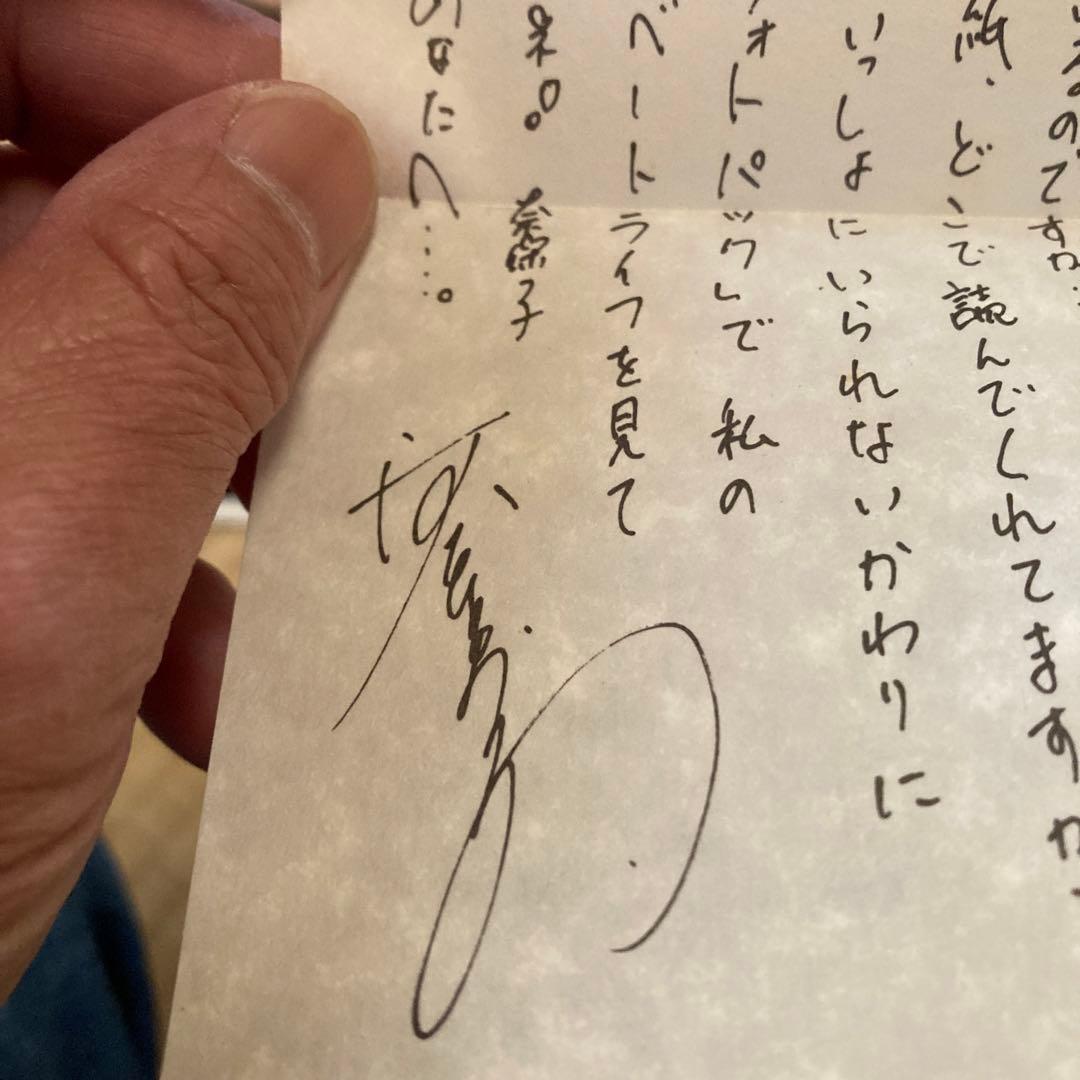 いるのですか…
紙、どこで読んでくれてますか、
いっしょにいられないかわりに
ォトパック」で私の
ベートライフを見て
ネ♡。 奈保子
のなたへ….。